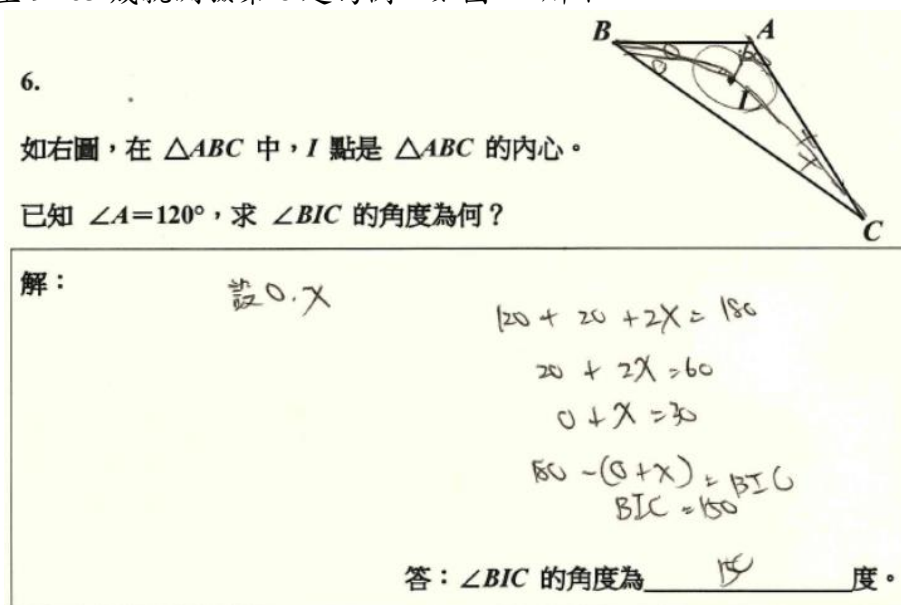 B
A
6.
I
如右圖，在 △ABC 中，I 點是 △ABC 的內心。
已知 ∠A＝120°，求 ∠BIC 的角度為何？
C
解：
設O.X
120 + 2O + 2X = 180
2O + 2X = 60
O + X = 30
180 - (O + X) = BIC
BIC = 150
答：∠BIC 的角度為 150 度。